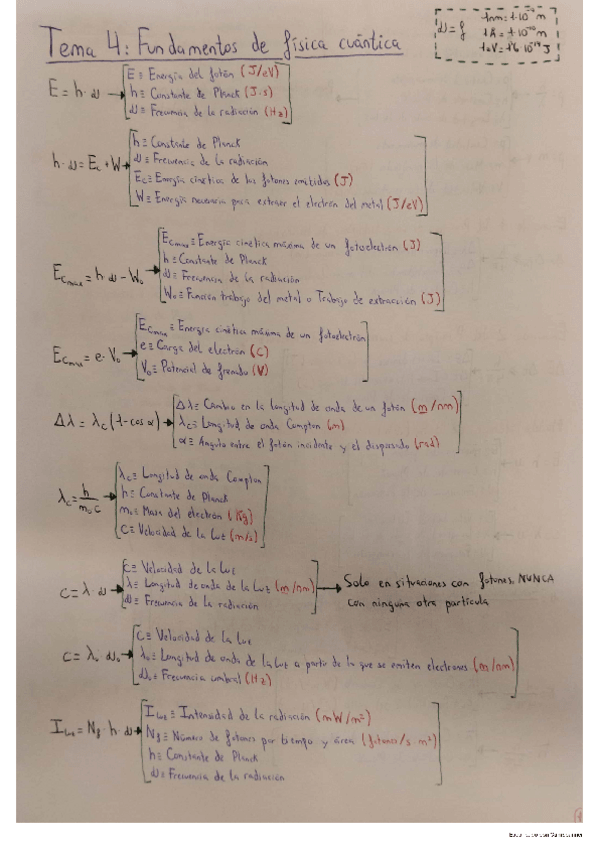 Tema 4: Fundamentos de física cuántica
ν = f
1nm = 1·10⁻⁹ m
1Å = 1·10⁻¹⁰ m
1eV = 1'6·10⁻¹⁹ J
E = h·ν →
E ≡ Energía del fotón (J/eV)
h ≡ Constante de Planck (J·s)
ν ≡ Frecuencia de la radiación (Hz)
h·ν = Ec + W →
h ≡ Constante de Planck
ν ≡ Frecuencia de la radiación
Ec ≡ Energía cinética de los fotones emitidos (J)
W ≡ Energía necesaria para extraer el electrón del metal (J/eV)
Ecmax = h·ν - W₀ →
Ecmax ≡ Energía cinética máxima de un fotoelectrón (J)
h ≡ Constante de Planck
ν ≡ Frecuencia de la radiación
W₀ ≡ Función trabajo del metal o Trabajo de extracción (J)
Ecmax = e·V₀ →
Ecmax ≡ Energía cinética máxima de un fotoelectrón
e ≡ Carga del electrón (C)
V₀ ≡ Potencial de frenado (V)
Δλ = λc(1-cos α) →
Δλ ≡ Cambio en la longitud de onda de un fotón (m/nm)
λc ≡ Longitud de onda Compton (m)
α ≡ Angulo entre el fotón incidente y el dispersado (rad)
λc = h / m₀c →
λc ≡ Longitud de onda Compton
h ≡ Constante de Planck
m₀ ≡ Masa del electrón (Kg)
C ≡ Velocidad de la luz (m/s)
c = λ·ν →
C ≡ Velocidad de la luz
λ ≡ Longitud de onda de la luz (m/nm) → Solo en situaciones con fotones, NUNCA
ν ≡ Frecuencia de la radiación
con ninguna otra partícula
c = λ₀·ν₀ →
C ≡ Velocidad de la luz
λ₀ ≡ Longitud de onda de la luz a partir de la que se emiten electrones (m/nm)
ν₀ ≡ Frecuencia umbral (Hz)
Iluz = Nf·h·ν →
Iluz ≡ Intensidad de la radiación (mW/m²)
Nf ≡ Número de fotones por tiempo y área (fotones/s·m²)
h ≡ Constante de Planck
ν ≡ Frecuencia de la radiación